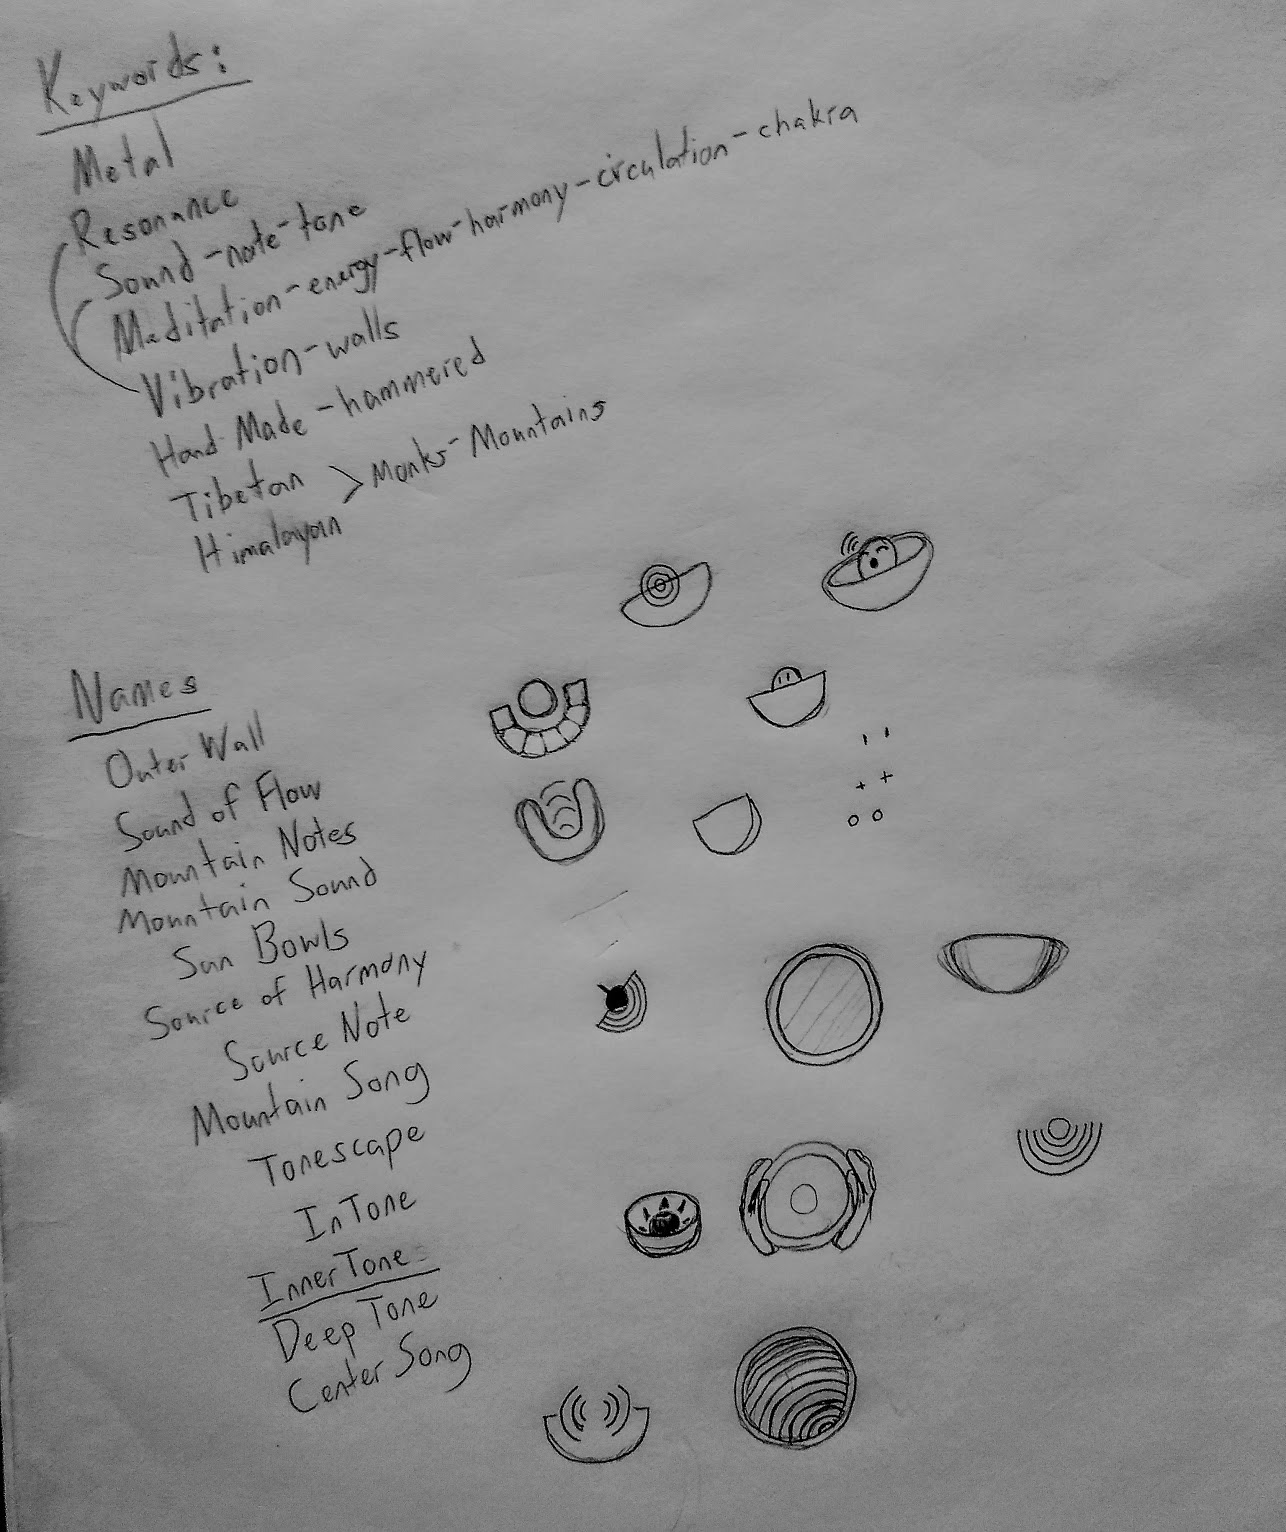 Keywords:
Metal
Resonance
Sound-note-tone
Meditation-energy-flow-harmony-circulation-chakra
Vibration-walls
Hand Made-hammered
Tibetan > Monks-Mountains
Himalayan
Names
Outer Wall
Sound of Flow
Mountain Notes
Mountain Sound
Sun Bowls
Source of Harmony
Source Note
Mountain Song
Tonescape
InTone
InnerTone
Deep Tone
Center Song